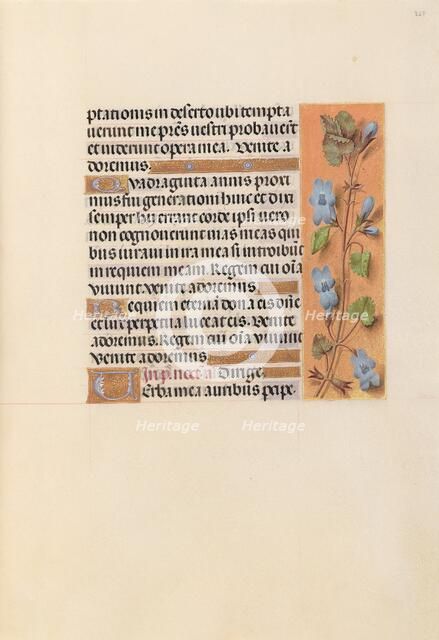 ptationis in deserto ubi tempta
verunt me pr̄es vestri probaver̄t
et viderunt opera mea. Venite a
doremus.
Quadraginta annis proxi
mus fui generationi huic et dixi
semper hii errant corde ipsi vero
non cognoverunt vias meas qui
bus iuravi in ira mea si introibūt
in requiem meam. Regem cui oīa
vivunt venite adoremus.
Requiem eternā dona eis dñe
et lux perpetua luceat eis. Venite
adoremus. Regem cui oīa vivunt
venite adoremus.
In p̄. nect. añ Dirige.
Verba mea auribus pcipe.
Heritage